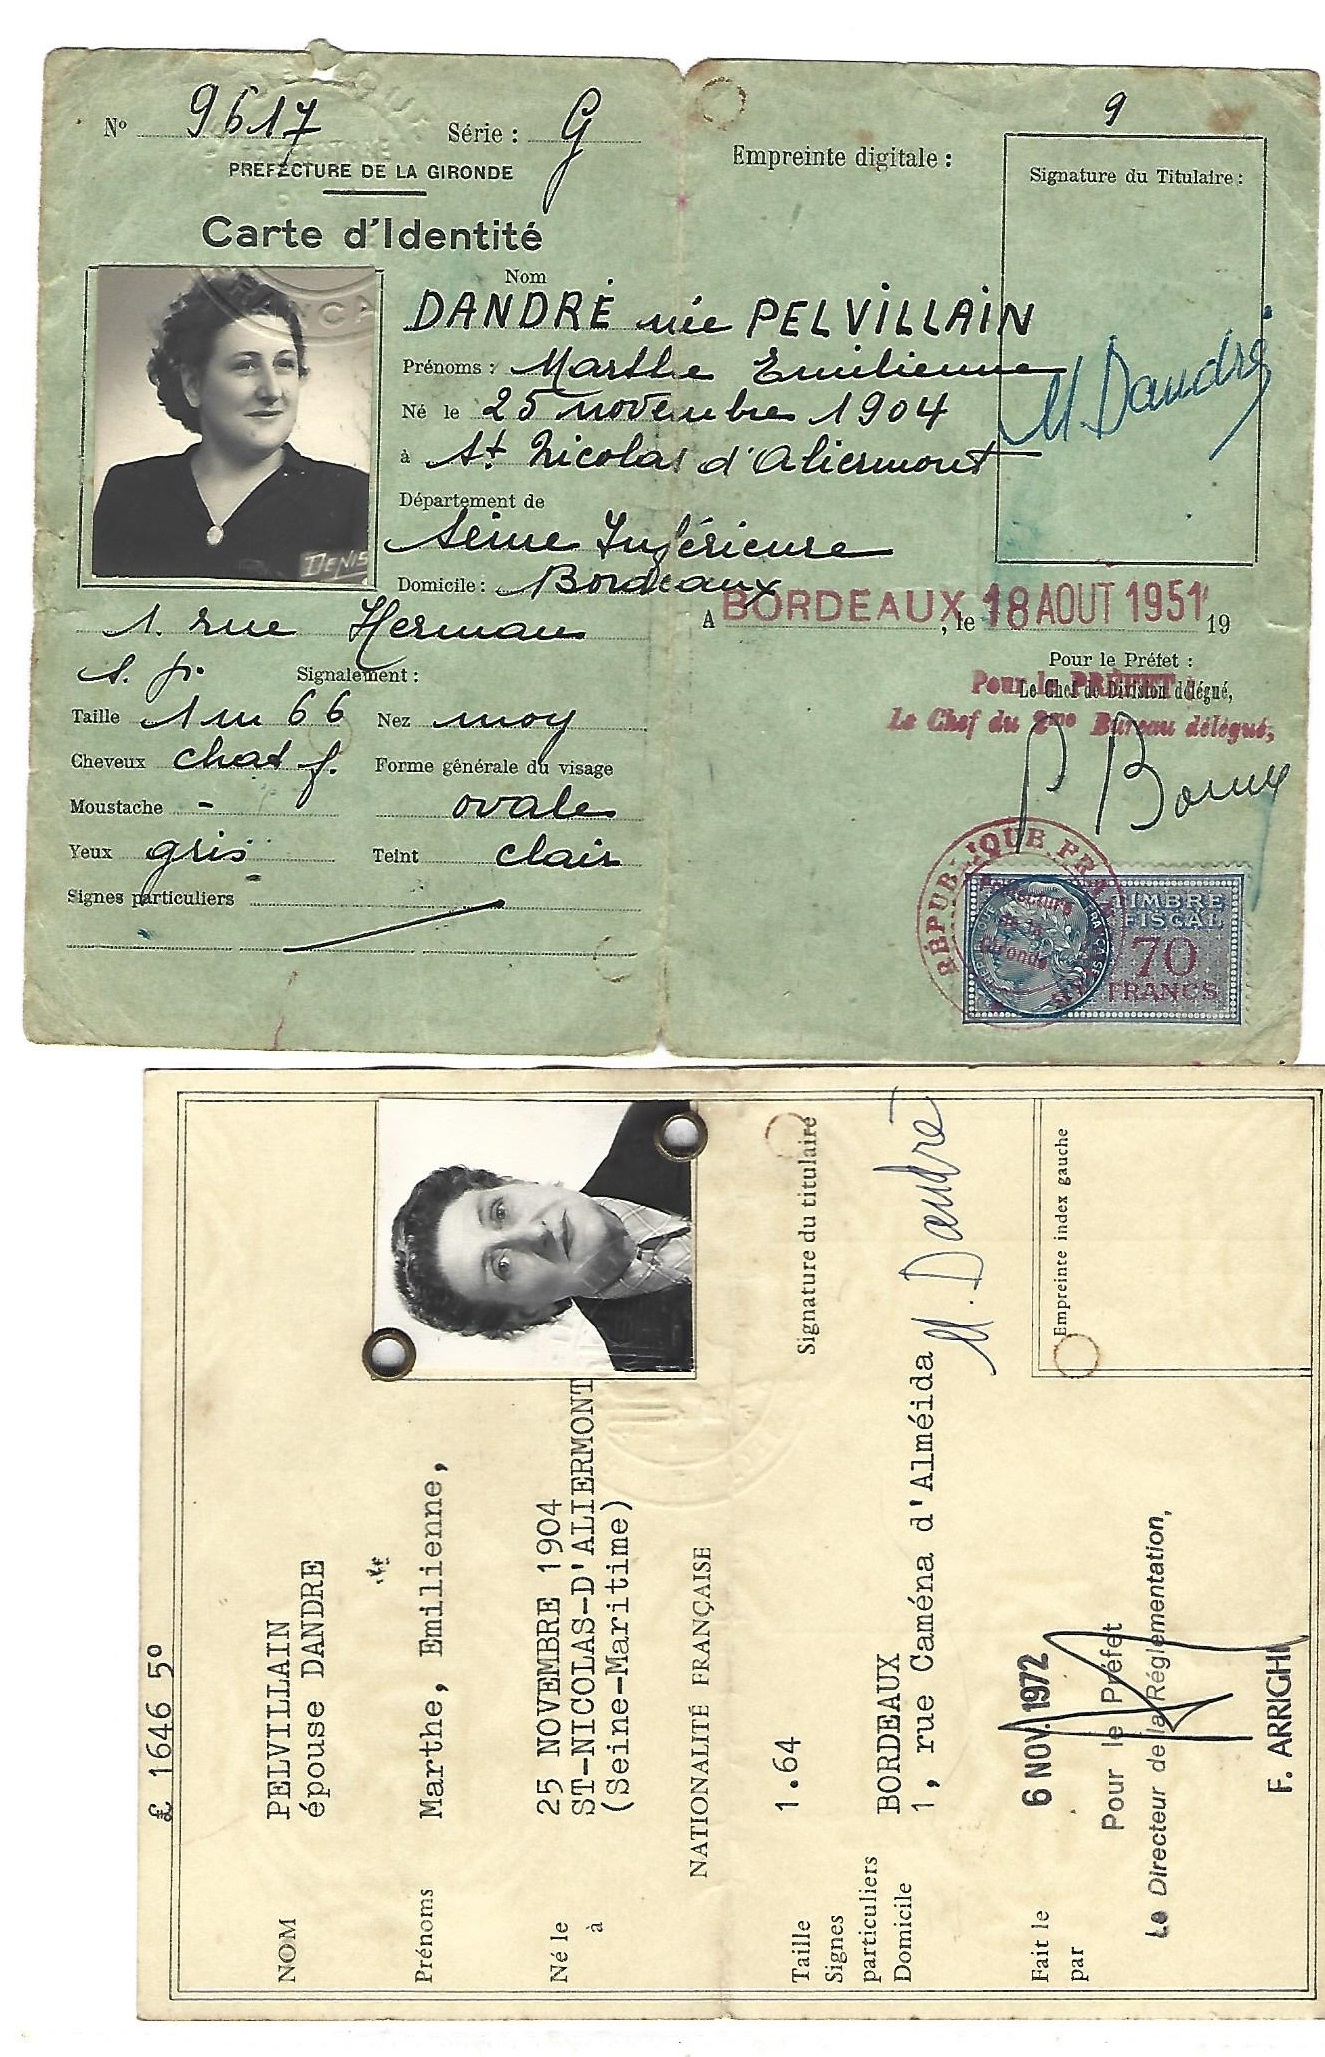 Nº 9617 Série : G
PREFECTURE DE LA GIRONDE
Carte d'Identité
Nom
DANDRÉ née PELVILLAIN
Prénoms : Marthe Emilienne
Né le 25 novembre 1904
à St Nicolas d'Aliermont
Département de
Seine Inférieure
Domicile : Bordeaux
1. rue Herman
Signalement :
Taille 1m 66 Nez moy
Cheveux chat f.
Forme générale du visage
Moustache - ovale
Yeux gris Teint clair
Signes particuliers
DENIS
9
Empreinte digitale :
Signature du Titulaire :
M. Dandré
A BORDEAUX, le 18 AOUT 1951 19
Pour le Préfet :
Pour le PRÉFET :
Le Chef de Division délégué,
Le Chef du 2me Bureau délégué,
RÉPUBLIQUE FRA
Gironde
TIMBRE
FISCAL
70
FRANCS
£ 1646 5º
NOM PELVILLAIN
épouse DANDRE
Prénoms Marthe, Emilienne,
Né le 25 NOVEMBRE 1904
à ST-NICOLAS-D'ALIERMONT
(Seine-Maritime)
NATIONALITÉ FRANÇAISE
Taille 1.64
Signature du titulaire
Signes
particuliers
Domicile BORDEAUX
1, rue Caména d'Alméida
M. Dandré
Fait le 6 NOV. 1972
par Pour le Préfet
Le Directeur de la Réglementation,
F. ARRIGHI
Empreinte index gauche